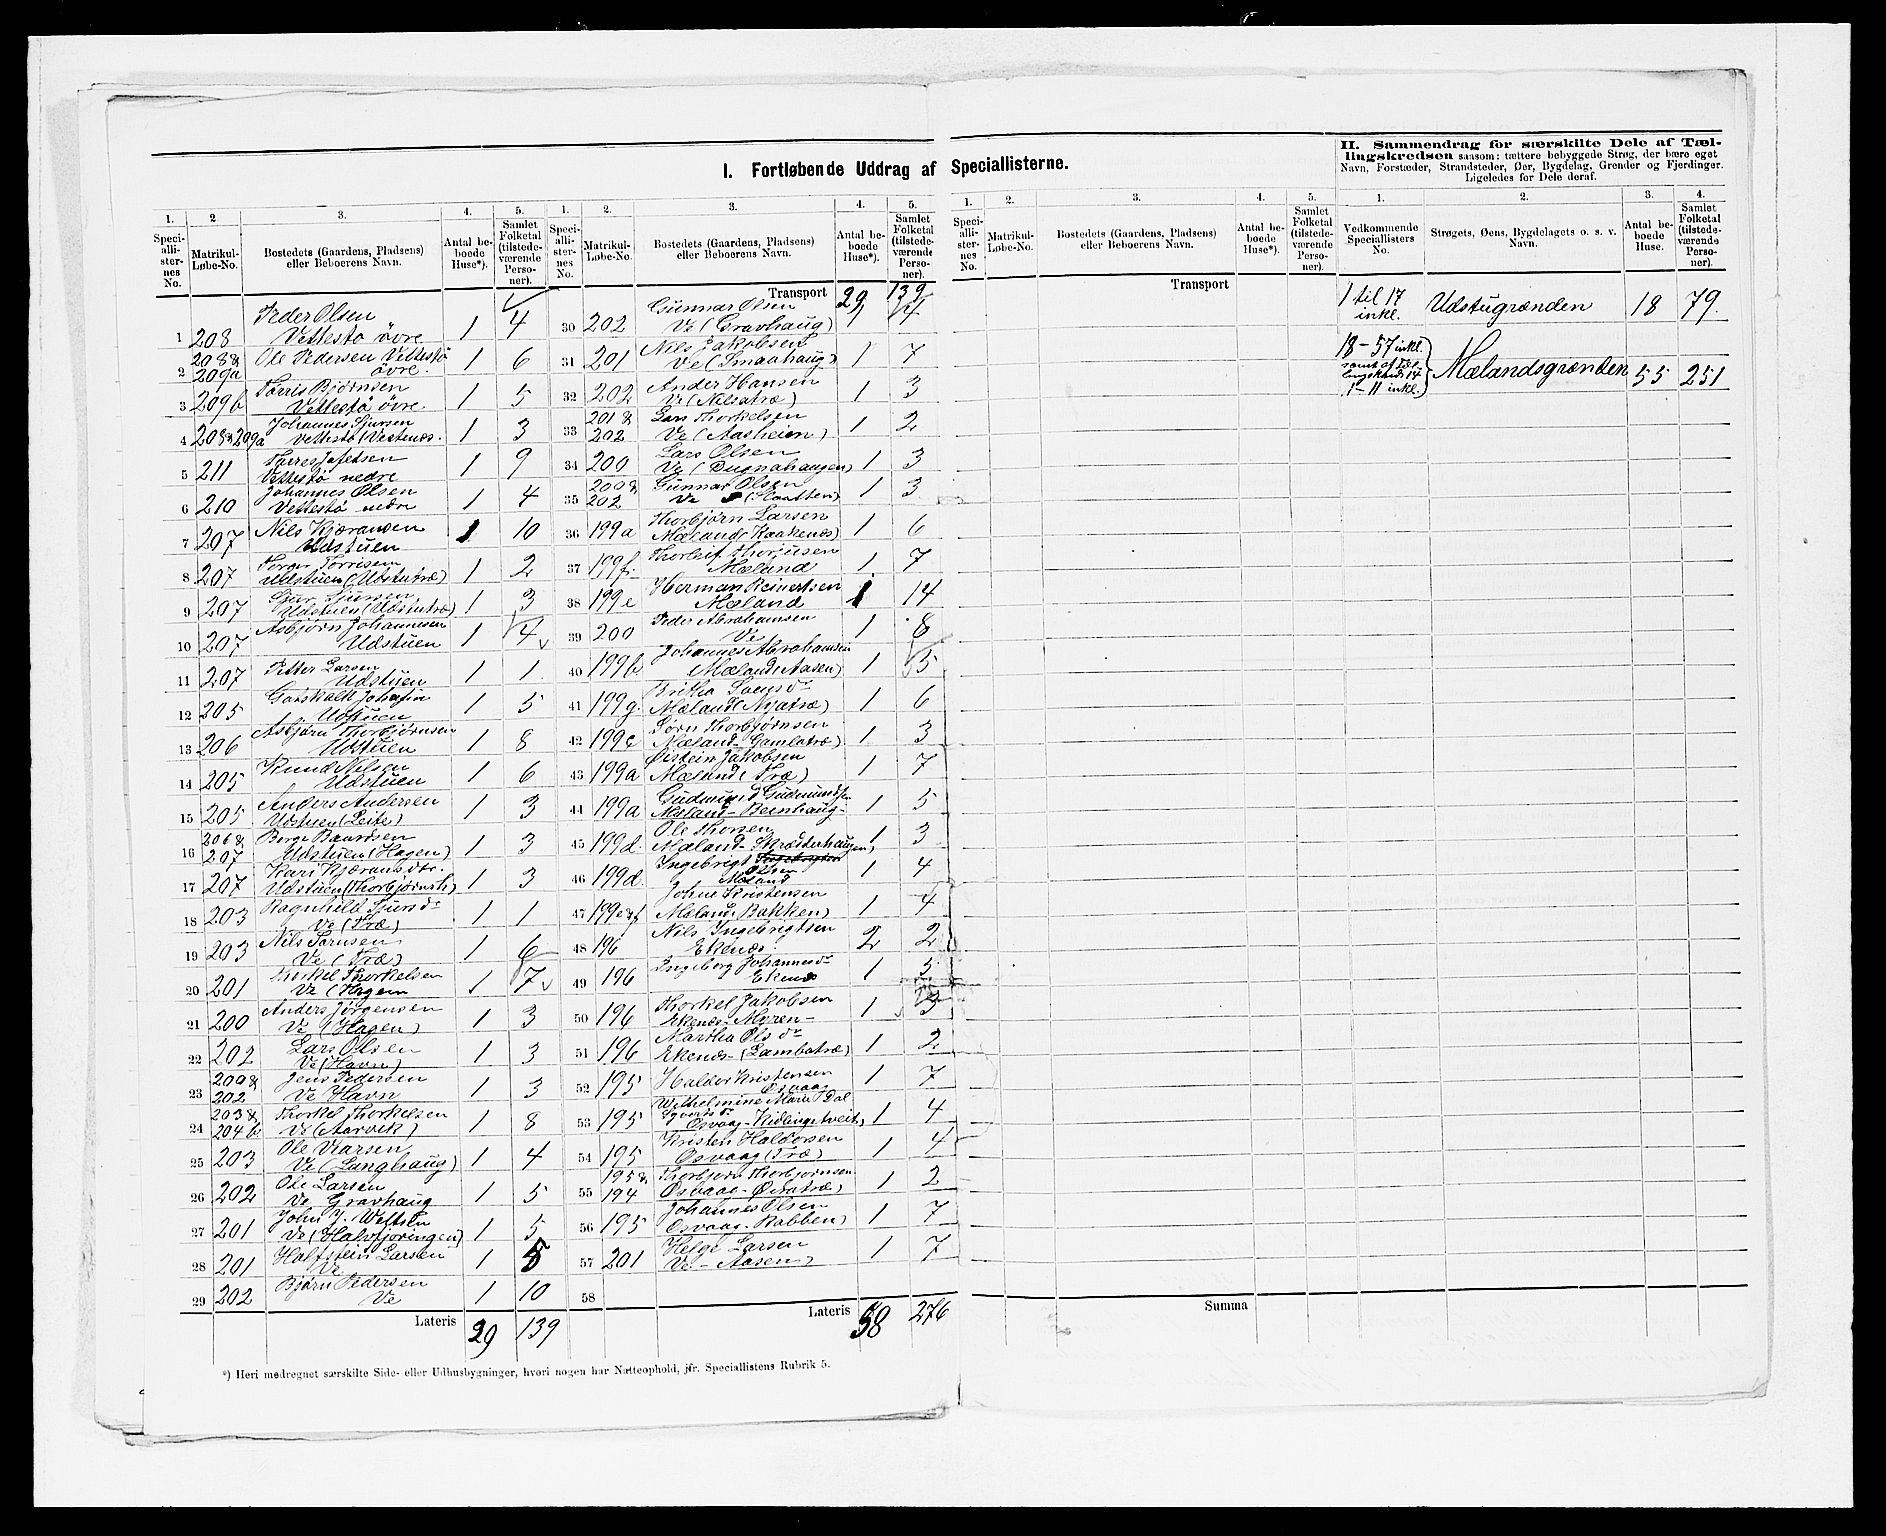 I. Fortløbende Uddrag af Speciallisterne.
II. Sammendrag for særskilte Dele af Tællingskredsen saasom: tættere bebyggede Strøg, der bære eget
Navn, Forstæder, Strandsteder, Øer, Bygdelag, Grender og Fjerdinger.
Ligeledes for Dele deraf.
1. 2 3. 4. 5. 1. 2. 3. 4. 5.
Speciallisternes No. Matrikul-Løbe-No. Bostedets (Gaardens, Pladsens) eller Beboerens Navn. Antal beboede Huse*). Samlet Folketal (tilstedeværende Personer).
1 208 Peder Olsen Vettestø övre 1 4
2 208 & 209a Ole Pedersen Vettestö övre. 1 6
3 209b Torris Bjørnsen Vettestö övre. 1 5
4 208 & 209a Johannes Sjursen Vettestö (Vestenæs. 1 3
5 211 Jafetsen Vettestö nedre 1 9
6 210 Johannes Olsen Vettestö nedre 1 4
7 207 Nils Kjæransen Udstuen 1 10
8 207 Torger Torrisen Udstuen (Udstutræ) 1 2
9 207 Sjur Sjursen Udstuen (Udstutræ) 1 3
10 207 Asbjørn Johannesen Udstuen 1 4
11 207 Petter Larsen Udstuen 1 1
12 205 Udstuen 1 5
13 206 Asbjørn Thorbjørnsen Udstuen 1 8
14 205 Knud Nilsen Udstuen 1 6
15 205 Anders Andersen Udstuen (Leite) 1 3
16 206 & 207 Børge Baardsen Udstuen (Hagen) 1 3
17 207 Kari Kjæransdtr. Udstuen 1 3
18 203 Ragnhild Sjursdr Ve (Træ) 1 1
19 203 Nils Ve (Træ) 1 6
20 201 Thorkel Thorkelsen Ve (Hagen 1 7
21 200 Anders Jörgensen Ve (Hagen) 1 3
22 202 Lars Olsen Ve (Havn) 1 3
23 200 & 202 Jens Pedersen Ve Havn 1 3
24 203 & 204b Thorkel Thorkelsen Ve (Aarvik) 1 8
25 203 Ole Ve (Langhaug) 1 4
26 202 Ole Larsen Ve Gravhaug 1 5
27 201 John J. Ve 1 5
28 201 Halfstein Larsen Ve 1 5
29 202 Bjørn Pedersen Ve 1 10
Lateris 29 139
Transport 29 139
30 202 Gunnar Olsen Ve (Gravhaug) 1 4
31 201 Nils Jakobsen Ve (Smaahaug) 1 7
32 202 Ander Hansen Ve (Nilsatræ) 1 3
33 201 & 202 Lars Thorkelsen Ve (Aasheim) 1 2
34 200 Lars Olsen Ve (Dugnahaugen) 1 3
35 200 & 202 Gunnar Olsen Ve (Slaatten) 1 3
36 199a Thorbjørn Larsen Mæland (Kaakenæs) 1 6
37 199f. Thorleif Mæland 1 7
38 199e Herman Reinertsen Mæland 1 14
39 200 Peder Abrahamsen Ve 1 8
40 199b. Johannes Abrahamsen Mæland (Aasen) 1 5
41 199g. Britha Mæland (Nyatræ) 1 6
42 199c Sørn Thorbjørnsen Mæland - Gamlatræ) 1 3
43 199a Øistein Jakobsen Mæland (Træ) 1 7
44 199a Gudmund Gudmundsen Mæland - 1 5
45 199d. Ole Thorsen Mæland - Skrædderhaugen) 1 3
46 199d. Ingebrigt Olsen Mæland 1 4
47 199e & f Johne Kristensen Mæland (Bakken) 1 4
48 196 Nils Ingebrigtsen Ekenæs. 2 2
49 196 Ingeborg Johannesdr Ekenæs 1 5
50 196 Thorkel Jakobsen Ekenæs - Myren - 1 3
51 196 Martha Olsdr Ekenæs - (Lambatræ) 1 2
52 195 Haldor Kristensen Osvaag 1 7
53 195 Wilhelmine Marie Dal Osvaag - 1 4
54 195 Kristen Haldorsen Osvaag (Træ) 1 4
55 195 & 194 Thorbjørn Thorbjørnsen Osvaag - Øvratræ) 1 2
56 195 Johannes Olsen Osvaag - Rabben) 1 7
57 201 Helge Larsen Ve - Aasen) 1 7
58
Lateris 58 276
*) Heri medregnet særskilte Side- eller Udhusbygninger, hvori nogen har Natteophold, jfr. Speciallistens Rubrik 5.
1. 2. 3. 4. 5.
Speciallisternes No. Matrikul-Løbe-No. Bostedets (Gaardens, Pladsens) eller Beboerens Navn. Antal beboede Huse*). Samlet Folketal (tilstedeværende Personer).
Transport
Summa
1. 2. 3. 4.
Vedkommende Speciallisters No. Strøgets, Øens, Bygdelagets o. s. v. Navn. Antal beboede Huse. Samlet Folketal (tilstedeværende Personer).
1 til 17 inkl. Udstugrænden 18 79.
18 - 57 inkl. samt af Tællingskreds 14 1 - 11 inkl. Mælandsgrænden 55 251